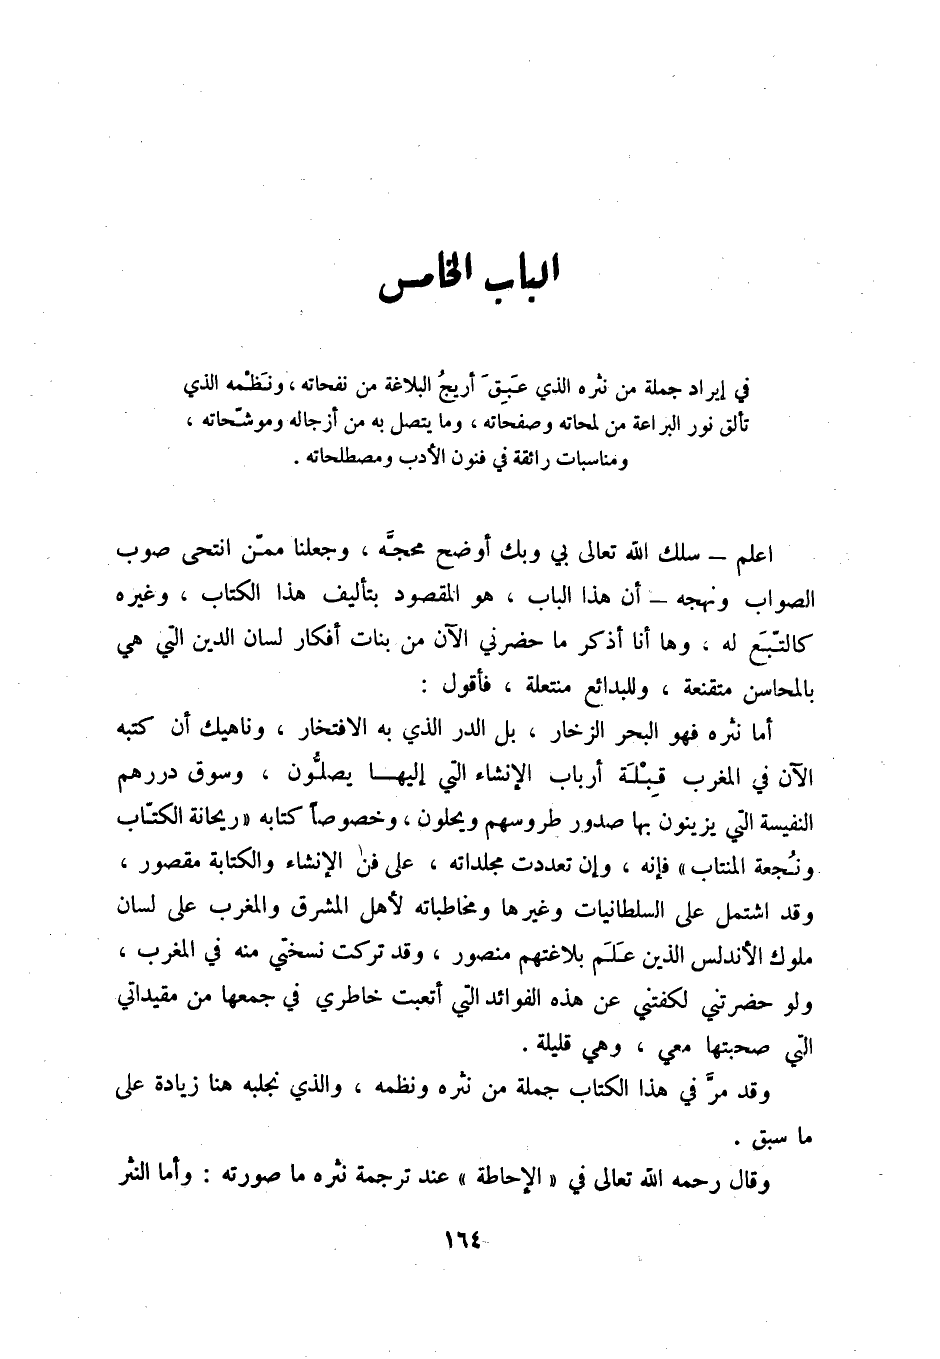 الباب الخامس
في إيراد جملة من نثره الذي عَبِقَ أريجُ البلاغة من نفحاته ، ونَظْمه الذي
تألق نور البراعة من لمحاته وصفحاته ، وما يتصل به من أزجاله وموشّحاته ،
ومناسبات رائقة في فنون الأدب ومصطلحاته .
اعلم – سلك الله تعالى بي وبك أوضح محجَّه ، وجعلنا ممّن انتحى صوب
الصواب ونهجه – أن هذا الباب ، هو المقصود بتأليف هذا الكتاب ، وغيره
كالتّبَع له ، وها أنا أذكر ما حضرني الآن من بنات أفكار لسان الدين التي هي
بالمحاسن متقنعة ، وللبدائع منتعلة ، فأقول :
أما نثره فهو البحر الزخار ، بل الدر الذي به الافتخار ، وناهيك أن كتبه
الآن في المغرب قِبْلَة أرباب الإنشاء التي إليهـا يصلُّون ، وسوق دررهم
النفيسة التي يزينون بها صدور طروسهم ويحلون ، وخصوصاً كتابه « ريحانة الكتّاب
ونُجعة المنتاب » فإنه ، وإن تعددت مجلداته ، على فن الإنشاء والكتابة مقصور ،
وقد اشتمل على السلطانيات وغيرها ومخاطباته لأهل المشرق والمغرب على لسان
ملوك الأندلس الذين عَلَم بلاغتهم منصور ، وقد تركت نسختي منه في المغرب ،
ولو حضرتني لكفتني عن هذه الفوائد التي أتعبت خاطري في جمعها من مقيداتي
التي صحبتها معي ، وهي قليلة .
وقد مرَّ في هذا الكتاب جملة من نثره ونظمه ، والذي نجلبه هنا زيادة على
ما سبق .
وقال رحمه الله تعالى في « الإحاطة » عند ترجمة نثره ما صورته : وأما النثر
١٦٤